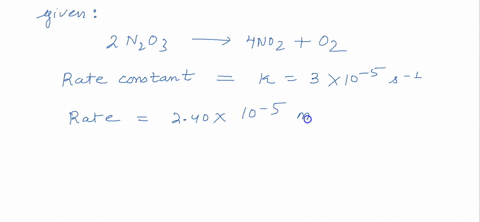 given:
2 N2O3 ⟶ 4NO2 + O2
Rate constant = K = 3 × 10-5 s-1
Rate = 2.40 × 10-5 m